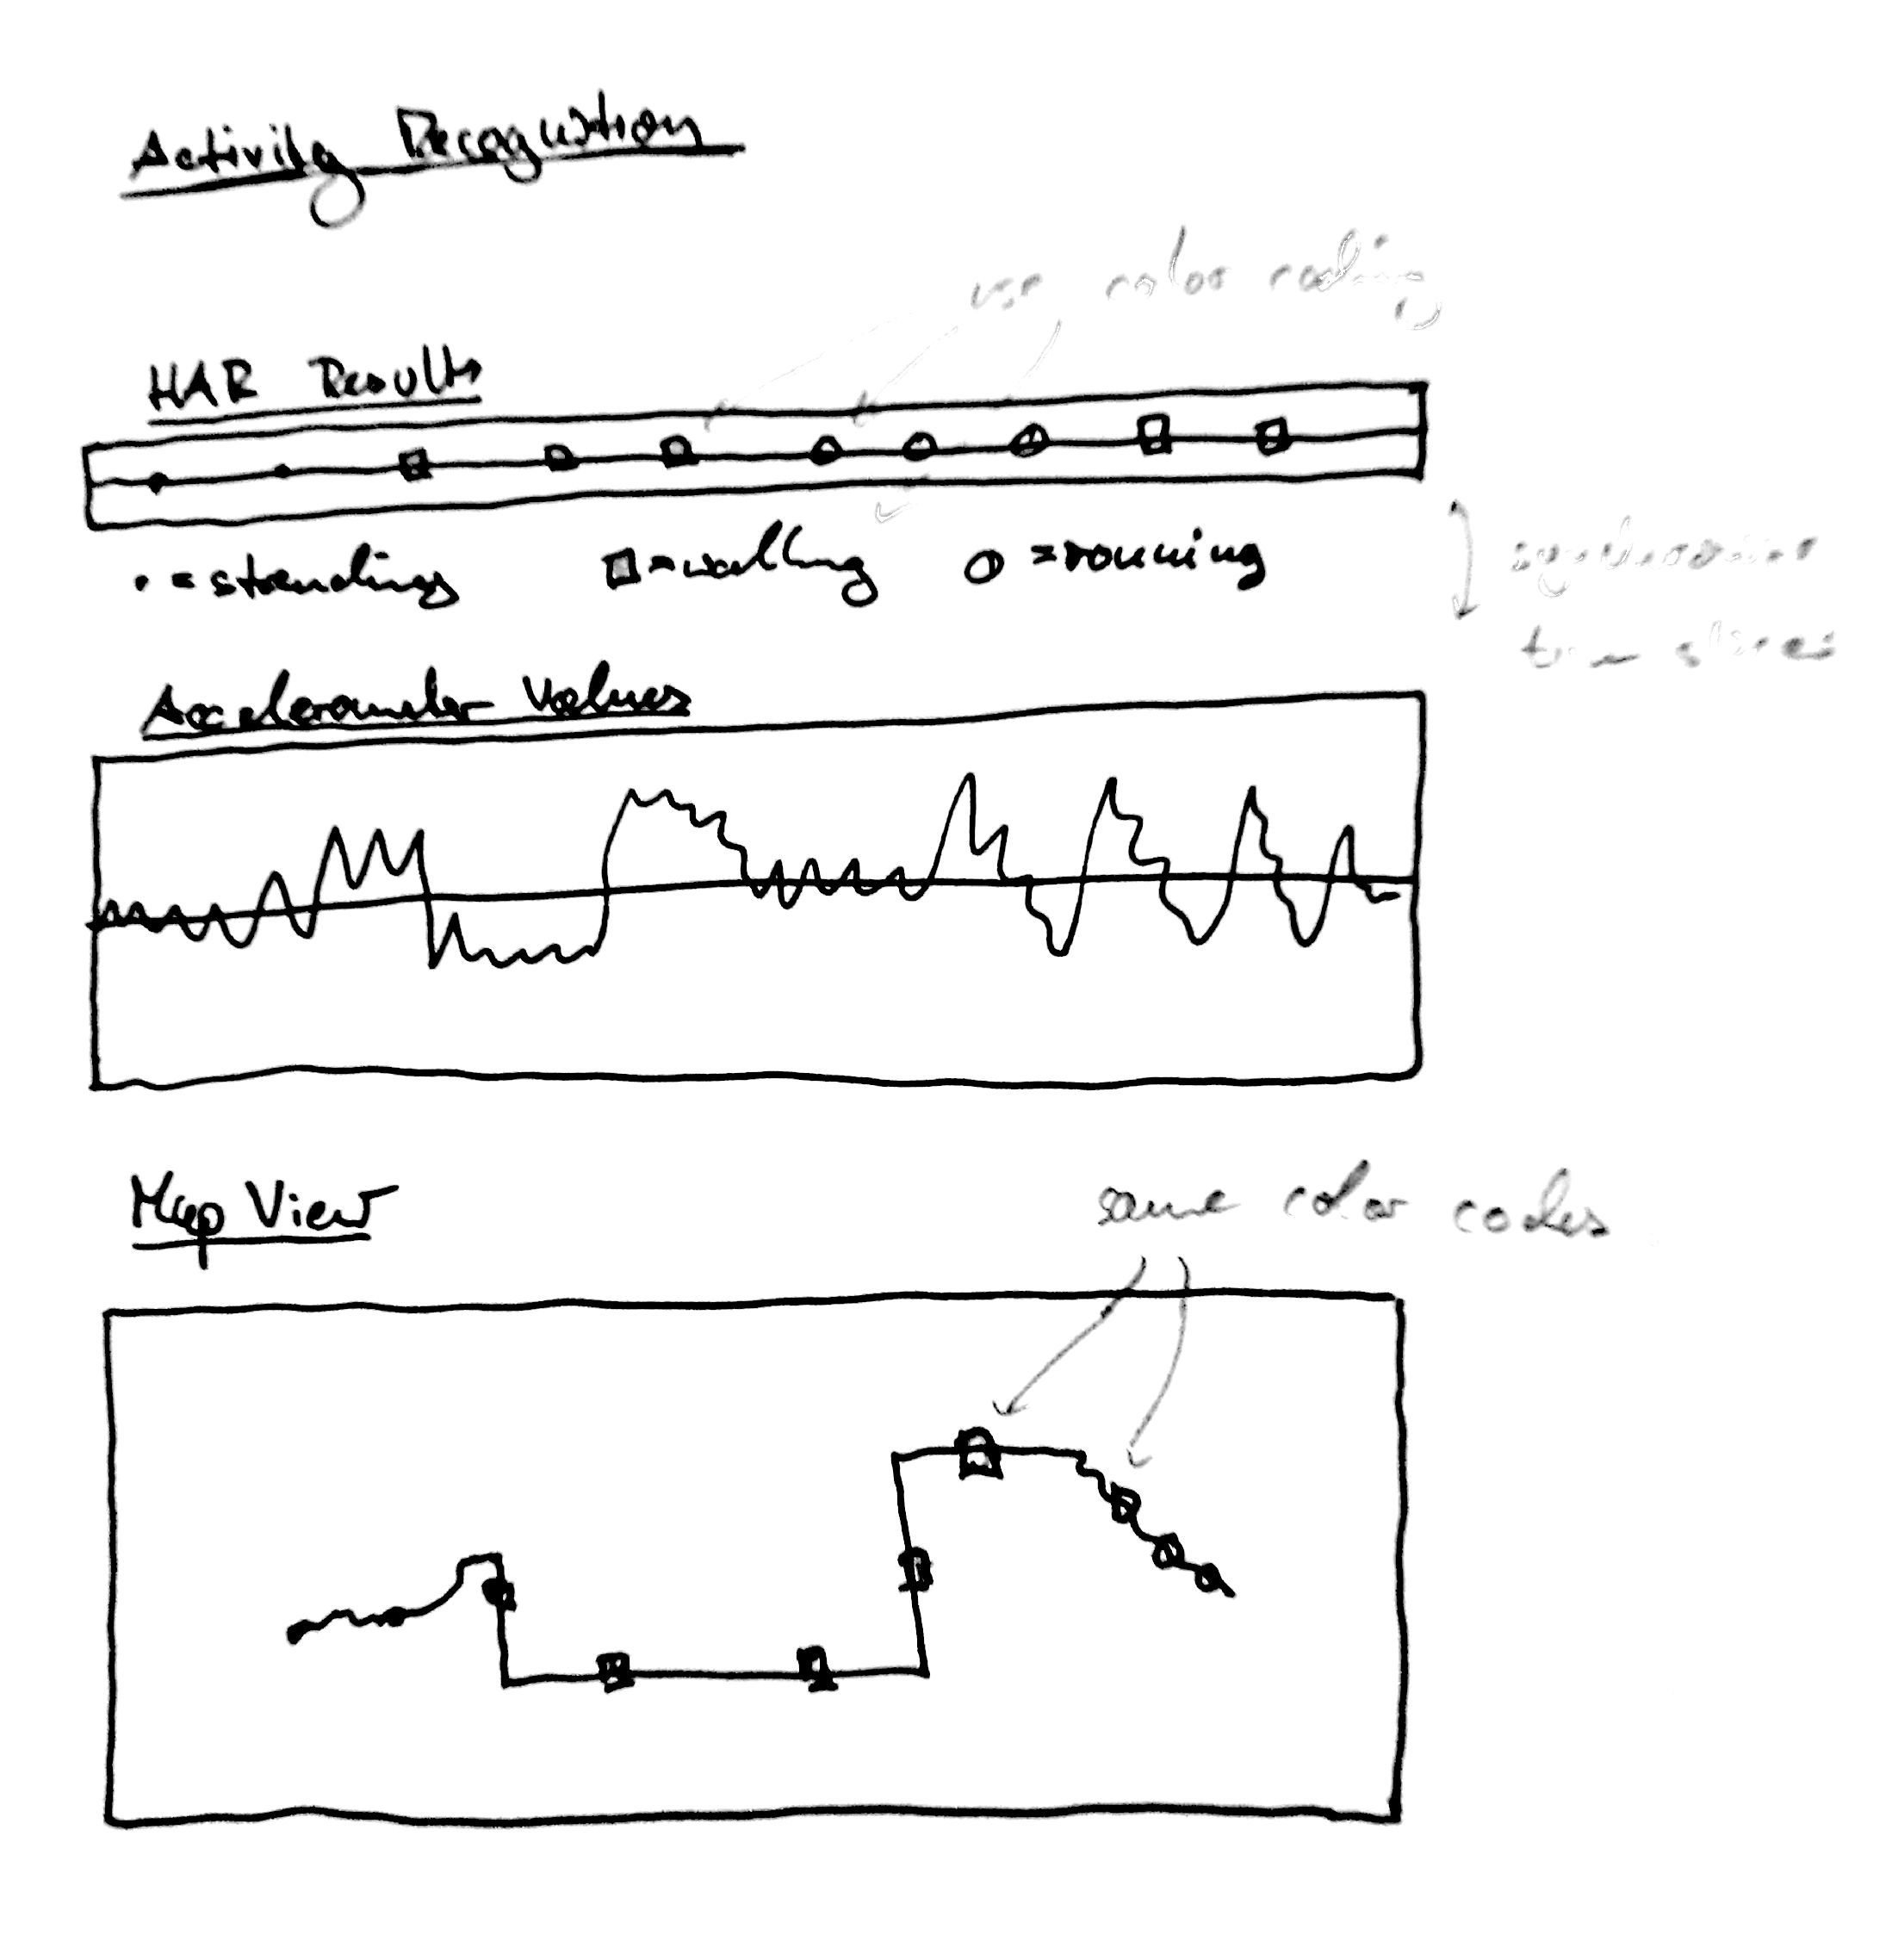 Activity Recognition
use color coding
HAR Results
• = standing □ = walking ○ = running
time slices
Accelerometer Values
Map View
same color codes